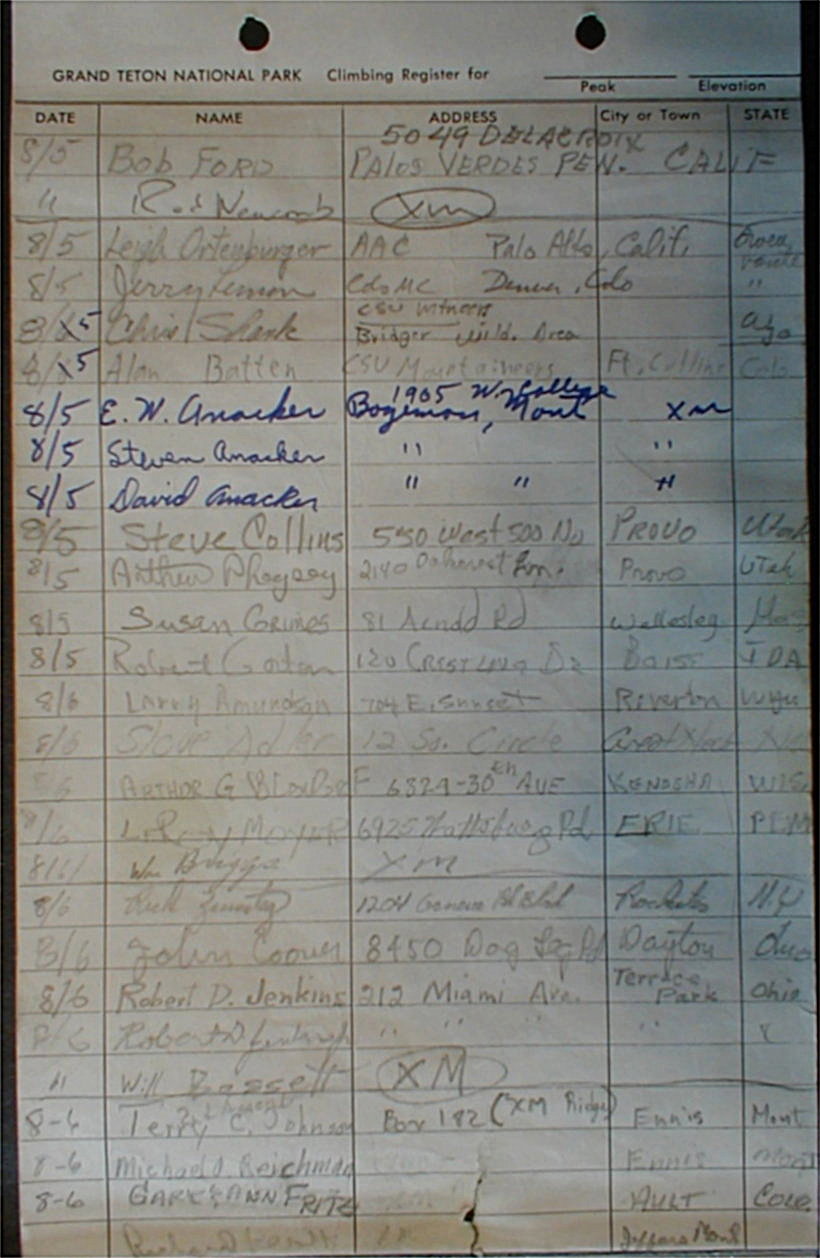 GRAND TETON NATIONAL PARK Climbing Register for
Peak Elevation
DATE NAME ADDRESS City or Town STATE
5049 DELACROIX
8/5 BOB FORD PALOS VERDES PEN. CALIF
" Rod Newcomb XM
8/5 Leigh Ortenburger AAC Palo Alto, Calif.
8/5 Jerry Lemon Colo MC Denver, Colo "
CSU Mtneers
8/5 Chris Shank Bridger Wild. Area
8/5 Alan Batten CSU Mountaineers Ft. Collins Colo
1905 W. College
8/5 E. W. Anacker Bozeman, Mont XM
8/5 Steven Anacker " "
8/5 David Anacker " " "
8/5 Steve Collins 550 West 500 No PROVO Utah
8/5 2140 Provo UTah
8/5 Susan Grimes 81 Rd Wellesley
8/5 Robert 120 Crestline Dr Boise IDA
8/6 Larry Amundson 704 E. Sunset Riverton Wyo
8/6 Steve Adler 12 So. Circle Great Neck
8/6 ARTHOR G 6324-30th AVE KENOSHA WIS
8/6 LeRoy MOYER 6925 Rd ERIE PENN
8/6 Wm Briggs XM
8/6 Rick 1204 N.Y
8/6 John Coover 8450 Dog Leg Rd Dayton Ohio
8/6 Robert D. Jenkins 212 Miami Ave. Terrace Park Ohio
8/6 Robert " " " "
" Will Bassett XM
8-6 Terry C. Johnson Box 182 (XM Ridge) Ennis Mont
8-6 Michael D. Reichman Ennis Mont
8-6 GARY & ANN FRITZ AULT COLO.
Richard Mont